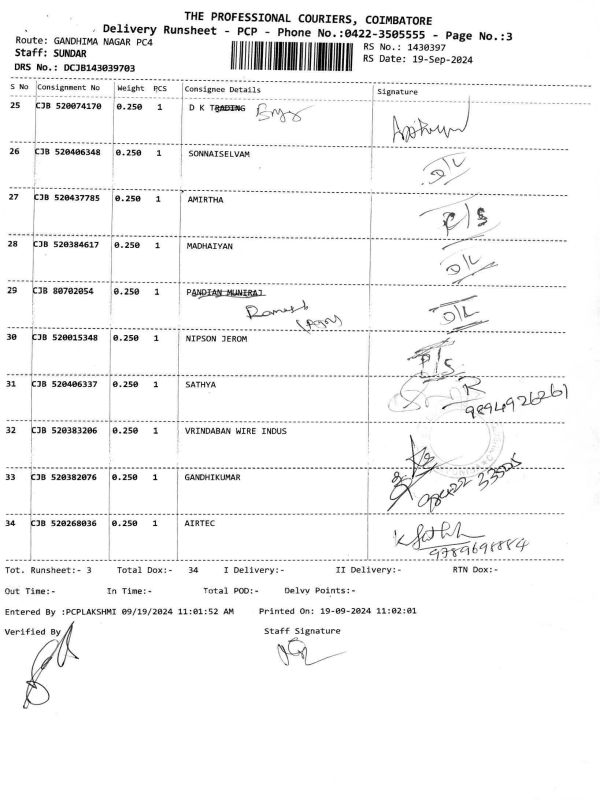 THE PROFESSIONAL COURIERS, COIMBATORE
Delivery Runsheet - PCP - Phone No.:0422-3505555 - Page No.:3
Route: GANDHIMA NAGAR PC4
RS No.: 1430397
Staff: SUNDAR
RS Date: 19-Sep-2024
DRS No.: DCJB143039703
S No Consignment No Weight PCS Consignee Details Signature
25 CJB 520074170 0.250 1 D K TRADING
26 CJB 520406348 0.250 1 SONNAISELVAM D/L
27 CJB 520437785 0.250 1 AMIRTHA P/S
28 CJB 520384617 0.250 1 MADHAIYAN D/L
29 CJB 80702054 0.250 1 PANDIAN MUNIRAJ D/L
30 CJB 520015348 0.250 1 NIPSON JEROM P/S
31 CJB 520406337 0.250 1 SATHYA
9894926261
32 CJB 520383206 0.250 1 VRINDABAN WIRE INDUS
33 CJB 520382076 0.250 1 GANDHIKUMAR
34 CJB 520268036 0.250 1 AIRTEC
9789698884
Tot. Runsheet:- 3 Total Dox:- 34 I Delivery:- II Delivery:- RTN Dox:-
Out Time:- In Time:- Total POD:- Delvy Points:-
Entered By :PCPLAKSHMI 09/19/2024 11:01:52 AM Printed On: 19-09-2024 11:02:01
Verified By Staff Signature